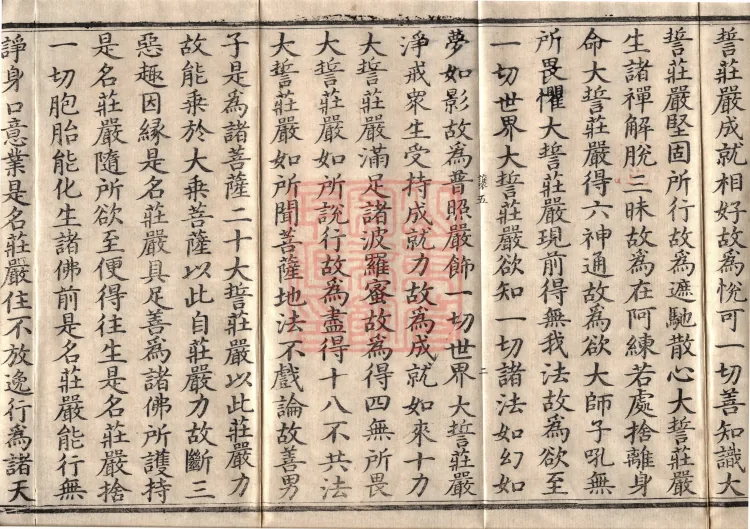 誓莊嚴成就相好故為悅可一切善知識大
誓莊嚴堅固所行故為遮馳散心大誓莊嚴
生諸禪解脫三昧故為在阿練若處捨離身
命大誓莊嚴得六神通故為欲大師子吼無
所畏懼大誓莊嚴現前得無我法故為欲至
一切世界大誓莊嚴欲知一切諸法如幻如
夢如影故為普照嚴飾一切世界大誓莊嚴
淨戒眾生受持成就力故為成就如來十力
大誓莊嚴滿足諸波羅蜜故為得四無所畏
大誓莊嚴如所說行故為盡得十八不共法
大誓莊嚴如所聞菩薩地法不戲論故善男
子是為諸菩薩二十大誓莊嚴以此莊嚴力
故能乘於大乘菩薩以此自莊嚴力故斷三
惡趣因緣是名莊嚴具足善為諸佛所護持
是名莊嚴隨所欲至便得往生是名莊嚴捨
一切胞胎能化生諸佛前是名莊嚴能行無
諍身口意業是名莊嚴住不放逸行為諸天